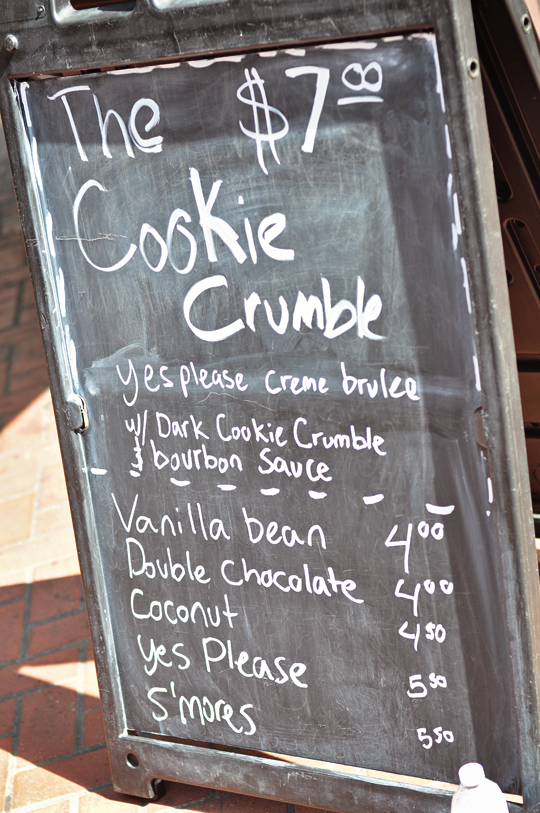 The $7.00
Cookie
Crumble
yes please creme brulee
w/ Dark Cookie Crumble
bourbon Sauce
Vanilla bean 4.00
Double Chocolate 4.00
Coconut 4.50
yes Please 5.50
s'mores 5.50